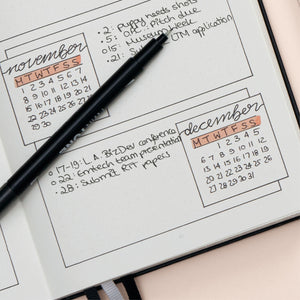 november
M T W T F S S
1 2 3 4 5 6 7
8 9 10 11 12 13 14
15 16 17 18 19 20 21
22 23 24 25 26 27 28
29 30
2: puppy needs shots
5: OPC pitch due
015: Museum Week
21: Submit UTM application
december
M T W T F S S
1 2 3 4 5
6 7 8 9 10 11 12
13 14 15 16 17 18 19
20 21 22 23 24 25 26
27 28 29 30 31
017-19: L.A. BizDev conference
022: Emtech team presentation
28: Submit RIT papers